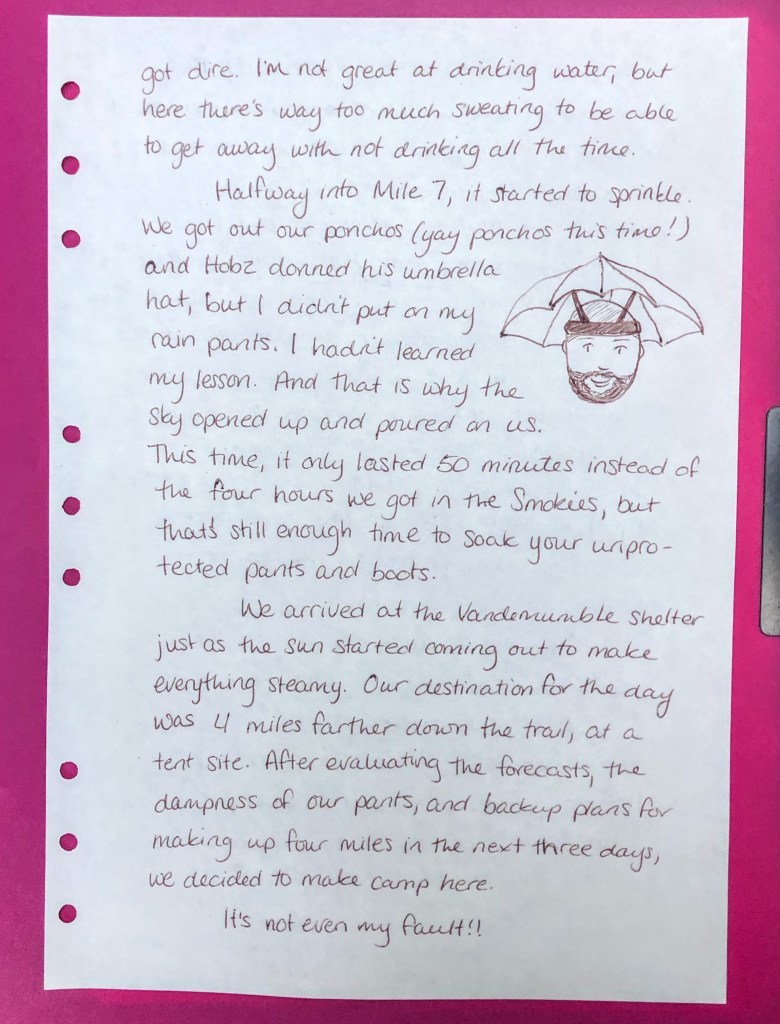 got dire. I'm not great at drinking water, but
here there's way too much sweating to be able
to get away with not drinking all the time.
Halfway into Mile 7, it started to sprinkle.
We got out our ponchos (yay ponchos this time!)
and Hobz donned his umbrella
hat, but I didn't put on my
rain pants. I hadn't learned
my lesson. And that is why the
sky opened up and poured on us.
This time, it only lasted 50 minutes instead of
the four hours we got in the Smokies, but
that's still enough time to soak your unpro-
tected pants and boots.
We arrived at the Vandemumble shelter
just as the sun started coming out to make
everything steamy. Our destination for the day
was 4 miles farther down the trail, at a
tent site. After evaluating the forecasts, the
dampness of our pants, and backup plans for
making up four miles in the next three days,
we decided to make camp here.
It's not even my fault!!